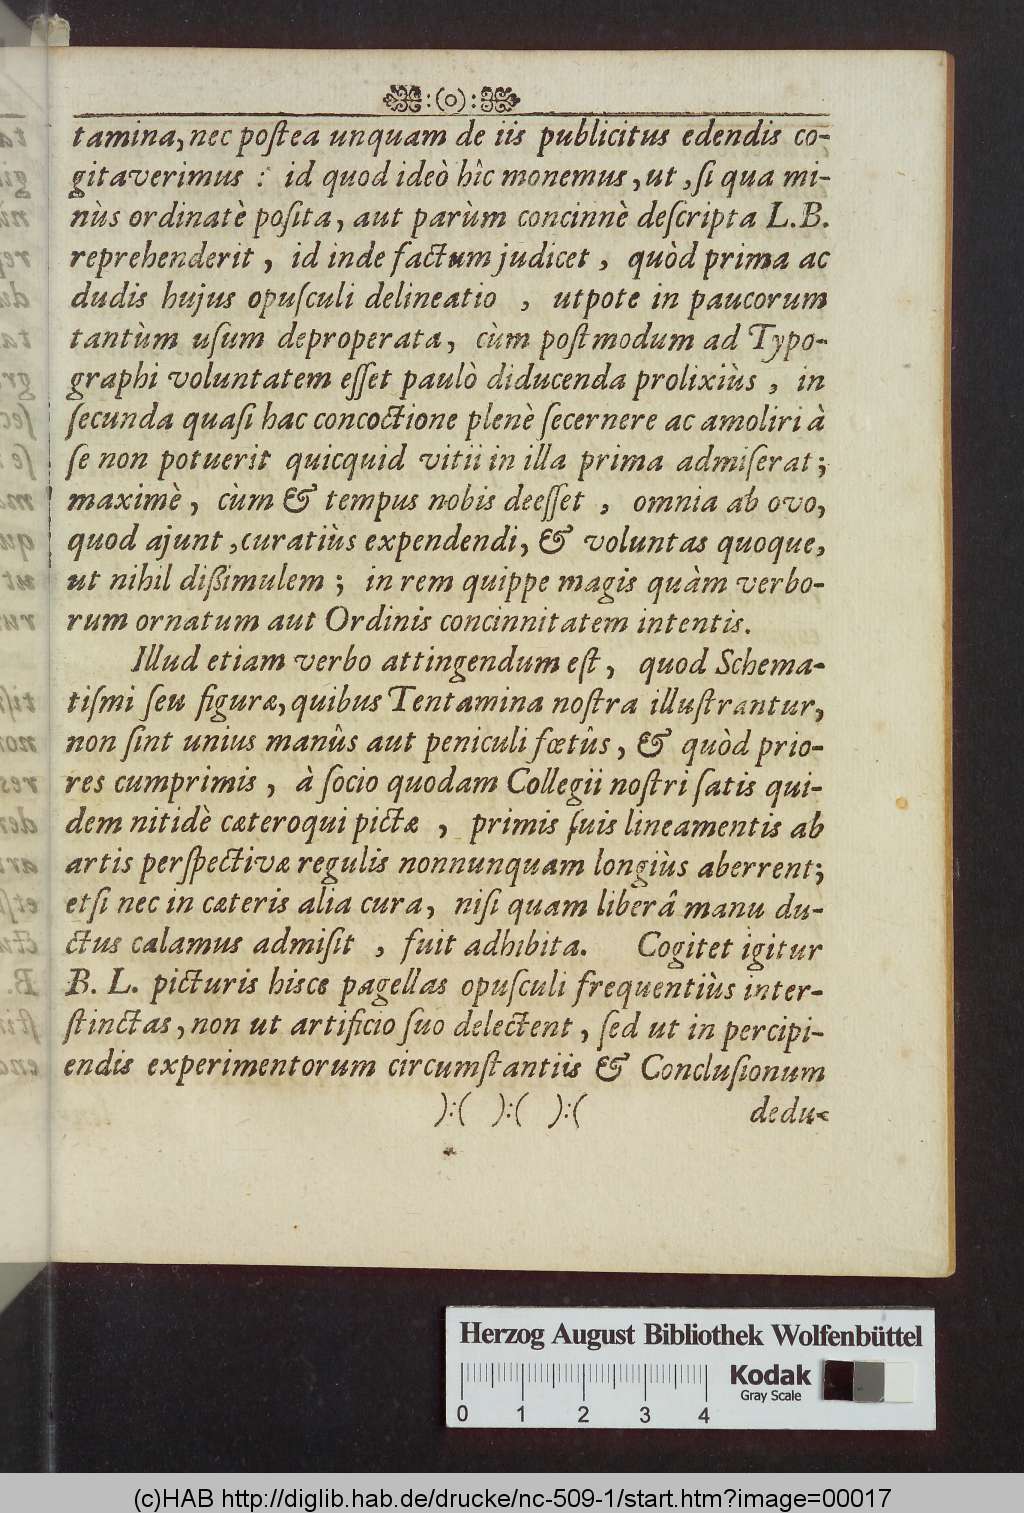 :(o):
tamina, nec poſtea unquam de iis publicitus edendis co-
gitaverimus : id quod ideò hîc monemus, ut, ſi qua mi-
nùs ordinatè poſita, aut parùm concinnè deſcripta L.B.
reprehenderit, id inde factum judicet, quòd prima ac
dudis hujus opuſculi delineatio, utpote in paucorum
tantùm uſum deproperata, cùm poſtmodum ad Typo-
graphi voluntatem eſſet paulò diducenda prolixiùs, in
ſecunda quaſi hac concoctione plenè ſecernere ac amoliri à
ſe non potuerit quicquid vitii in illa prima admiſerat;
maximè, cùm & tempus nobis deeſſet, omnia ab ovo,
quod ajunt, curatiùs expendendi, & voluntas quoque,
ut nihil dißimulem; in rem quippe magis quàm verbo-
rum ornatum aut Ordinis concinnitatem intentis.
Illud etiam verbo attingendum eſt, quod Schema-
tiſmi ſeu figuræ, quibus Tentamina noſtra illuſtrantur,
non ſint unius manûs aut peniculi fœtûs, & quòd prio-
res cumprimis, à ſocio quodam Collegii noſtri ſatis qui-
dem nitidè cæteroqui pictæ, primis ſuis lineamentis ab
artis perſpectivæ regulis nonnunquam longiùs aberrent;
etſi nec in cæteris alia cura, niſi quam liberâ manu du-
ctus calamus admiſit, fuit adhibita. Cogitet igitur
B. L. picturis hisce pagellas opuſculi frequentiùs inter-
ſtinctas, non ut artificio ſuo delectent, ſed ut in percipi-
endis experimentorum circumſtantiis & Concluſionum
):( ):( ):( dedu-
Herzog August Bibliothek Wolfenbüttel
Kodak
Gray Scale
0 1 2 3 4
(c)HAB http://diglib.hab.de/drucke/nc-509-1/start.htm?image=00017